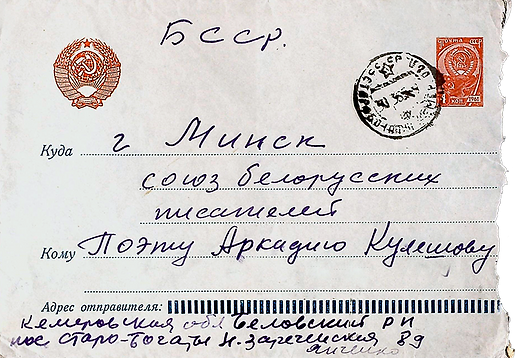 БССР.
г Минск
Куда
союз белорусских
писателей
Кому Поэту Аркадию Кулешову
Адрес отправителя:
Кемеровская обл Беловский р н
пос Старо-Бочаты Н. Заречинская 89